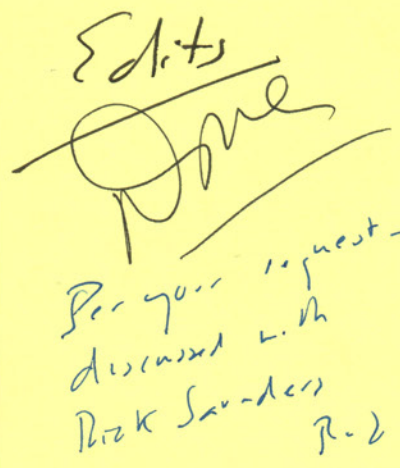 Edits
Done
Per your request -
discussed with
Rick Saunders